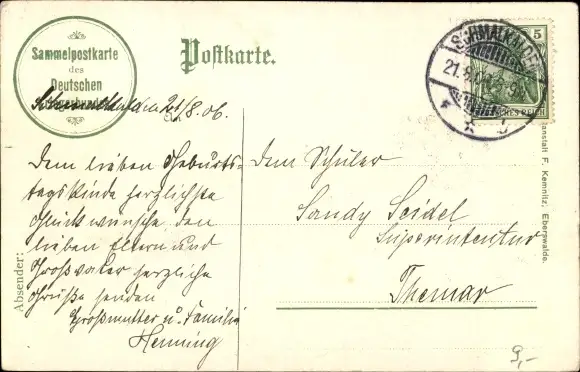 Sammelpostkarte
des
Deutschen
Postkarte.
SCHMALKALDEN
21.8.
5
DEUTSCHES REICH
Schmalkalden 21/8.06.
Dem lieben Geburts-
tagskinde herzlichste
Glückwünsche, den
lieben Eltern und
Großvater herzliche
Grüße senden
Großmutter u. Familie
Henning
Dem Schüler
Sandy Seidel
Superintentur
Themar
Absender:
anstalt F. Kemnitz, Eberswalde.
9,-